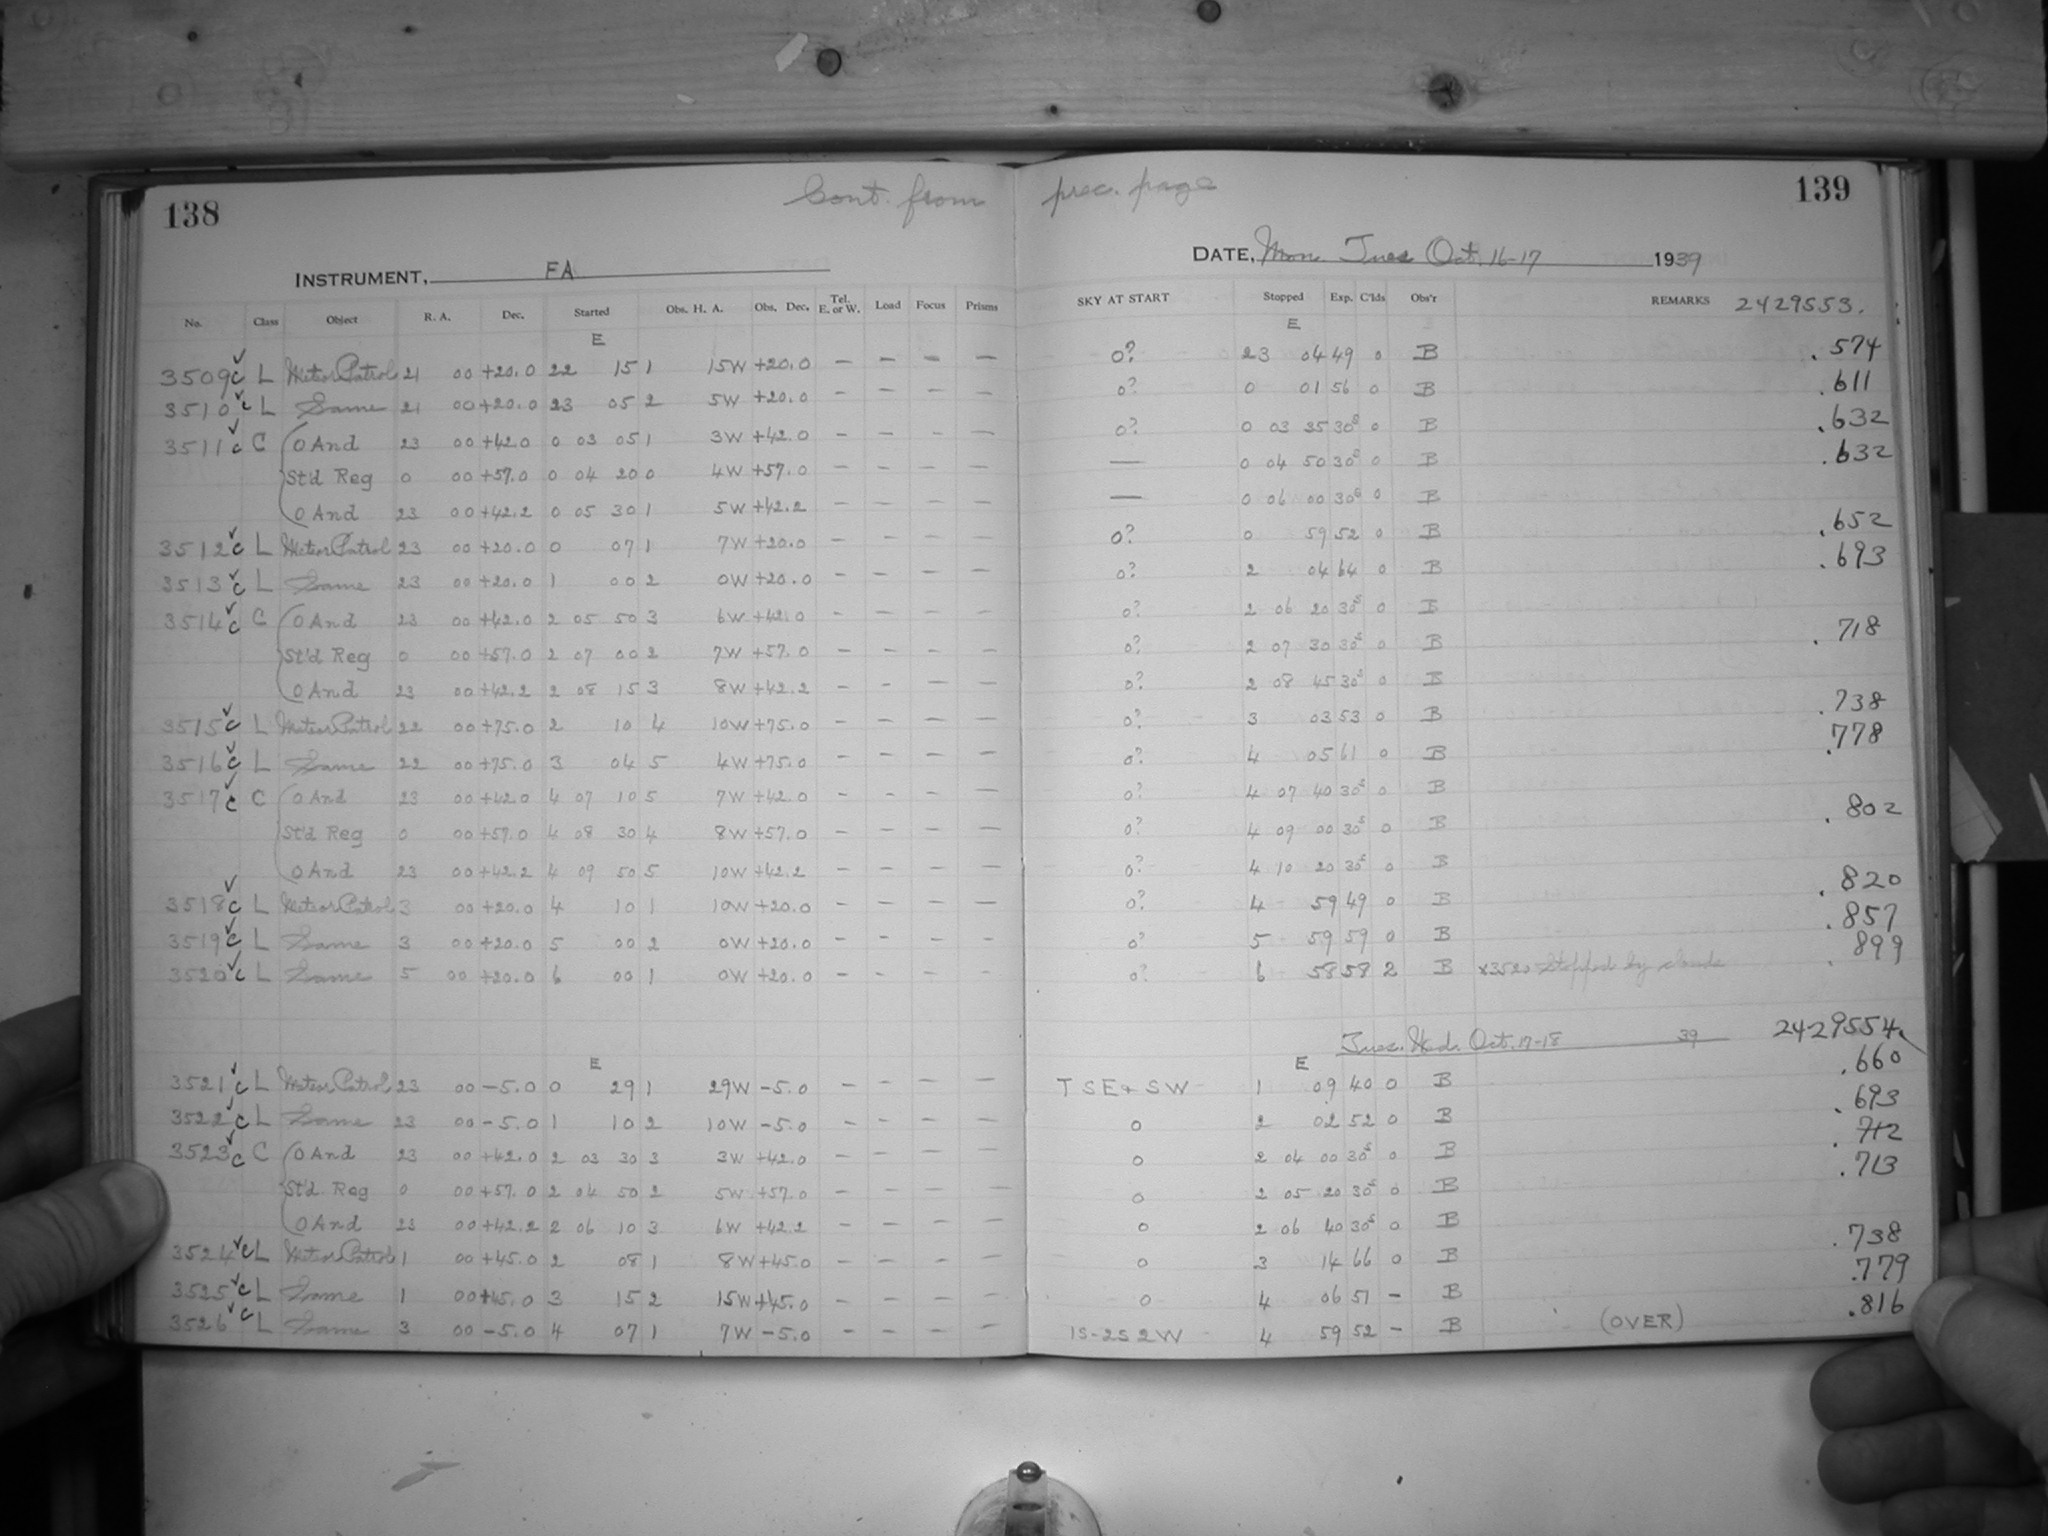 138 Cont. from prec. page 139
INSTRUMENT, FA DATE, Mon. Tues Oct. 16-17 1939
No. Class Object R. A. Dec. Started Obs. H. A. Obs. Dec. Tel. E. or W. Load Focus Prisms SKY AT START Stopped Exp. C'lds Obs'r REMARKS 2429553.
E E
3509 c L Meteor Patrol 21 00 +20.0 22 15 1 15W +20.0 — — — — 0? 23 04 49 0 B .574
3510 c L Same 21 00 +20.0 23 05 2 5W +20.0 — — — — 0? 0 01 56 0 B .611
3511 c C O And 23 00 +42.0 0 03 05 1 3W +42.0 — — — — 0? 0 03 35 30s 0 B .632
St'd Reg 0 00 +57.0 0 04 20 0 4W +57.0 — — — — — 0 04 50 30s 0 B .632
O And 23 00 +42.2 0 05 30 1 5W +42.2 — — — — — 0 06 00 30s 0 B
3512 c L Meteor Patrol 23 00 +20.0 0 07 1 7W +20.0 — — — — 0? 0 59 52 0 B .652
3513 c L Same 23 00 +20.0 1 00 2 0W +20.0 — — — — 0? 2 04 64 0 B .693
3514 c C O And 23 00 +42.0 2 05 50 3 6W +42.0 — — — — 0? 2 06 20 30s 0 B
St'd Reg 0 00 +57.0 2 07 00 2 7W +57.0 — — — — 0? 2 07 30 30s 0 B .718
O And 23 00 +42.2 2 08 15 3 8W +42.2 — — — — 0? 2 08 45 30s 0 B
3515 c L Meteor Patrol 22 00 +75.0 2 10 4 10W +75.0 — — — — 0? 3 03 53 0 B .738
3516 c L Same 22 00 +75.0 3 04 5 4W +75.0 — — — — 0? 4 05 61 0 B .778
3517 c C O And 23 00 +42.0 4 07 10 5 7W +42.0 — — — — 0? 4 07 40 30s 0 B
St'd Reg 0 00 +57.0 4 08 30 4 8W +57.0 — — — — 0? 4 09 00 30s 0 B .802
O And 23 00 +42.2 4 09 50 5 10W +42.2 — — — — 0? 4 10 20 30s 0 B
3518 c L Meteor Patrol 3 00 +20.0 4 10 1 10W +20.0 — — — — 0? 4 59 49 0 B .820
3519 c L Same 3 00 +20.0 5 00 2 0W +20.0 — — — — 0? 5 59 59 0 B .857
3520 c L Same 5 00 +20.0 6 00 1 0W +20.0 — — — — 0? 6 58 58 2 B x3520 Stopped by clouds .899
Tues. Wed. Oct. 17-18 39 2429554.
E E
3521 c L Meteor Patrol 23 00 -5.0 0 29 1 29W -5.0 — — — — T SE + SW 1 09 40 0 B .660
3522 c L Same 23 00 -5.0 1 10 2 10W -5.0 — — — — 0 2 02 52 0 B .693
3523 c C O And 23 00 +42.0 2 03 30 3 3W +42.0 — — — — 0 2 04 00 30s 0 B .712
St'd Reg 0 00 +57.0 2 04 50 2 5W +57.0 — — — — 0 2 05 20 30s 0 B .713
O And 23 00 +42.2 2 06 10 3 6W +42.2 — — — — 0 2 06 40 30s 0 B
3524 c L Meteor Patrol 1 00 +45.0 2 08 1 8W +45.0 — — — — 0 3 14 66 0 B .738
3525 c L Same 1 00 +45.0 3 15 2 15W +45.0 — — — — 0 4 06 51 — B .779
3526 c L Same 3 00 -5.0 4 07 1 7W -5.0 — — — — 1S-2S 2W 4 59 52 — B (OVER) .816